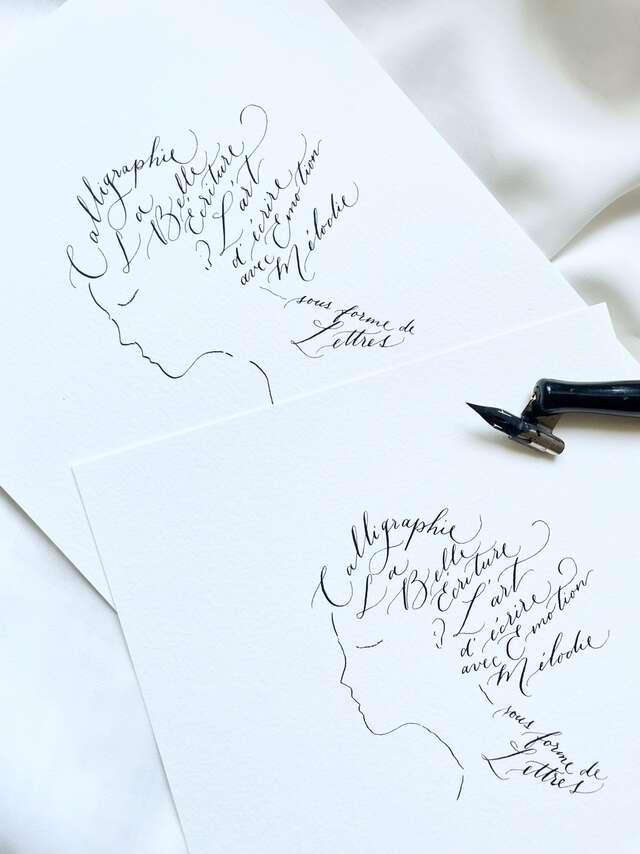 Calligraphie
La Belle
Écriture
L'art
d'écrire
avec Emotion
Mélodie
sous forme de
Lettres
Calligraphie
La Belle
Écriture
L'art
d'écrire
avec Emotion
Mélodie
sous forme de
Lettres